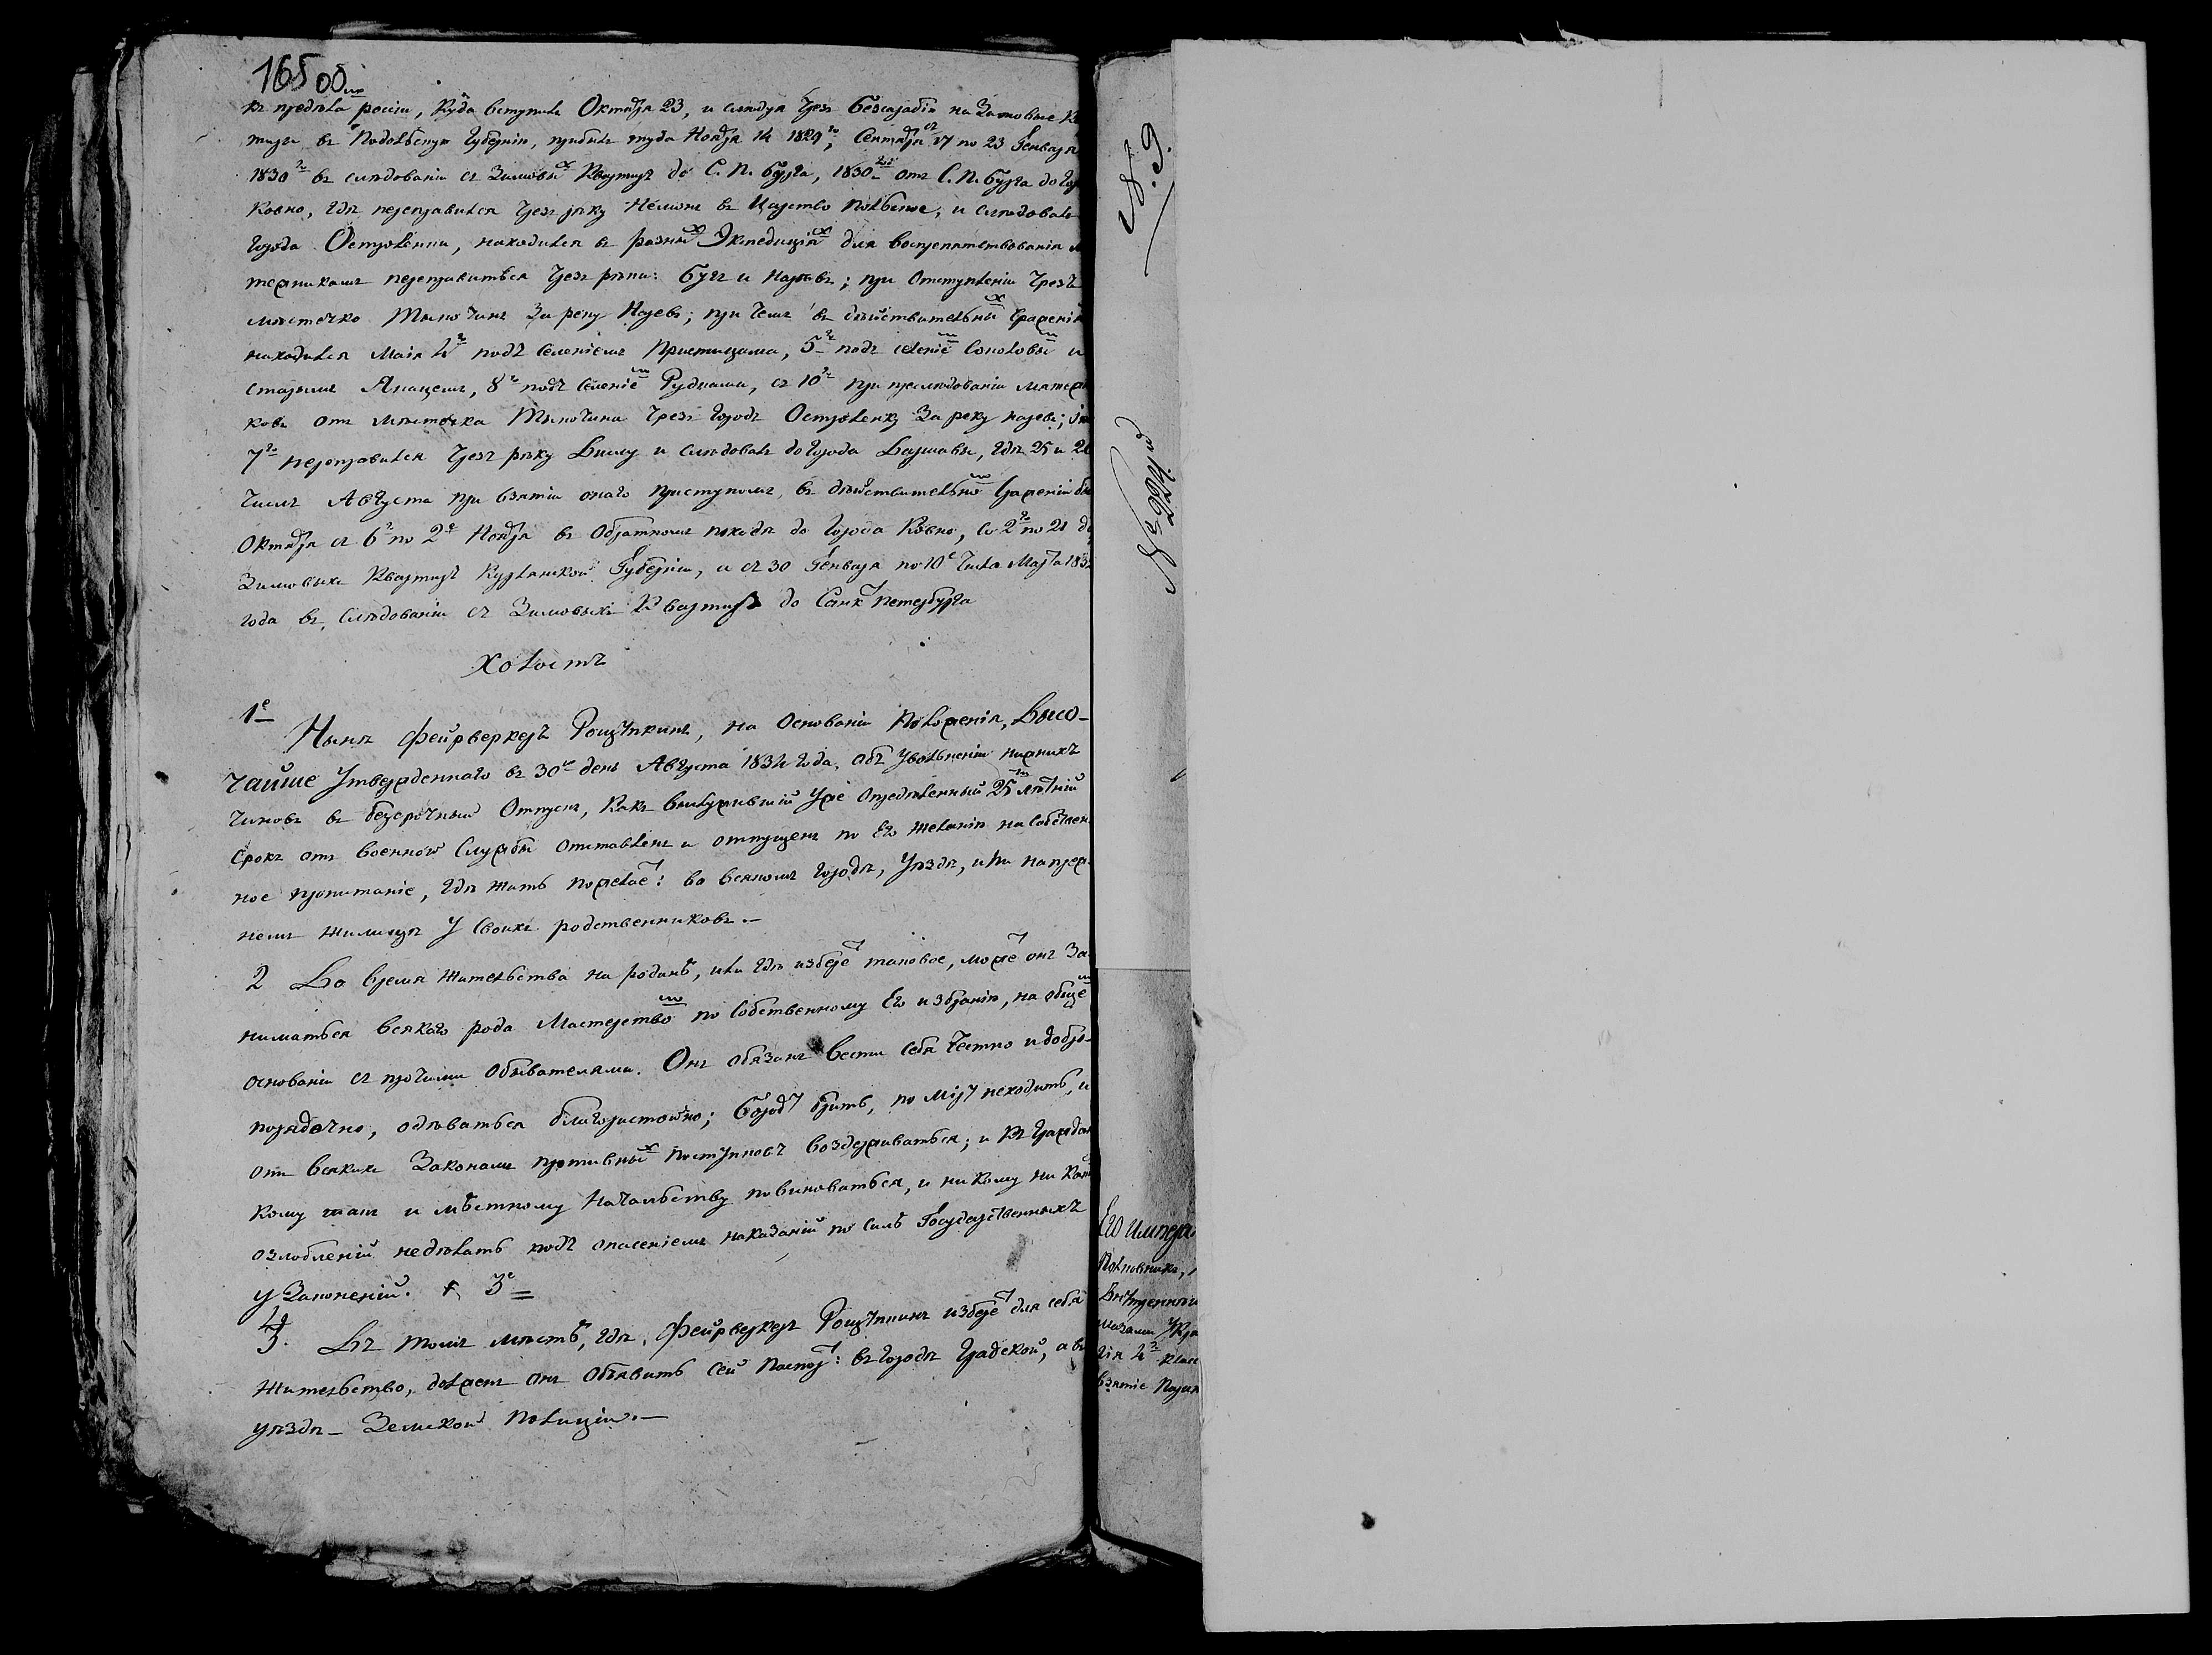 165 об
къ предѣла россіи, куда вступилъ Октября 23, и слѣдуя чрезъ Бессарабію на Зимовые К
тиры въ Подольскую Губернію, прибылъ туда Ноября 14 1829го, Сентября съ 17 по 23 Генваря
1830го въ слѣдованіи съ Зимовыхъ Квартиръ до С. П. бурга, 1830 отъ С. П. бурга до го
Ковно, гдѣ переправился чрезъ рѣку Нѣмонъ въ Царство Польское, и слѣдовалъ
города Остроленки, находился въ разныхъ Экспедиціяхъ для воспрепятствованія м
тежникамъ переправиться чрезъ рѣки: Бугъ и Наревъ; при отступленіи чрезъ
мѣстечко Тыкочинъ за реку Наревъ; при чемъ въ дѣйствительныхъ сраженія
находился Маія 4го подъ селеніемъ Пристицами, 5го подъ селеніем Соколовым и
старымъ Якацемъ, 8го подъ селеніем Рудками, съ 10го при преслѣдованіи мятеж
ковъ отъ мѣстечка Тыкочина чрезъ городъ Остроленку за реку Наревъ; Ію
7го переправился чрезъ рѣку Вислу и слѣдовалъ до города Варшавы, гдѣ 25 и 26
числъ Августа при взятіи онаго приступомъ, въ дѣйствительном сраженіи бы
Октября съ 6го по 2е Ноября въ обратномъ походѣ до города Ковно, со 2го по 21 до
Зимовыхъ Квартиръ Курлянской Губерніи, и съ 30 Генваря по 10е числа Марта 183
года въ слѣдованіи съ Зимовыхъ Квартиръ до Санкт Петербурга
Холостъ
1е
Нынѣ фейрверкеръ Рощупкинъ, на основаніи Положенія, Высо-
чайше утвержденнаго въ 30е день Августа 1834 года, объ увольненіи нижнихъ
чиновъ въ безсрочный отпускъ, какъ выслужившій уже опредѣленный 25ти лѣтній
срокъ отъ военной службы отставленъ и отпущенъ по Его желанію на собствен
ное пропитаніе, гдѣ жить пожелает: во всякомъ городѣ, уѣздѣ, или на преж
немъ жилищѣ у своихъ родственниковъ.-
2 Во время жительства на роданѣ, или гдѣ изберет таковое, может онъ за
ниматься всякаго рода Мастерством по собственному Его избранію, на общем
основаніи съ прочими обывателями. Онъ обязанъ вести себя честно и добро-
порядочно, одѣваться благопристойно; бороду брить, по міру не ходить, и
отъ всякихъ законамъ противных поступковъ воздерживаться; и къ граждан
кому такъ и мѣстному Начальству повиноваться, и никому ни как
озлобленій не дѣлать подъ опасеніемъ наказаній по силѣ Государственныхъ
узаконеній. 3е
4
3. Въ томъ мѣстѣ, гдѣ, фейрверкеръ Рощупкинъ изберет для себя
жительство, долженъ онъ объявить сей паспорт: въ городѣ градской, а въ
уѣздѣ - Земской полиціи.-
№ 9.
№ 229й
Его Импера
Полковника,
Вы
4го Клас
взятіе